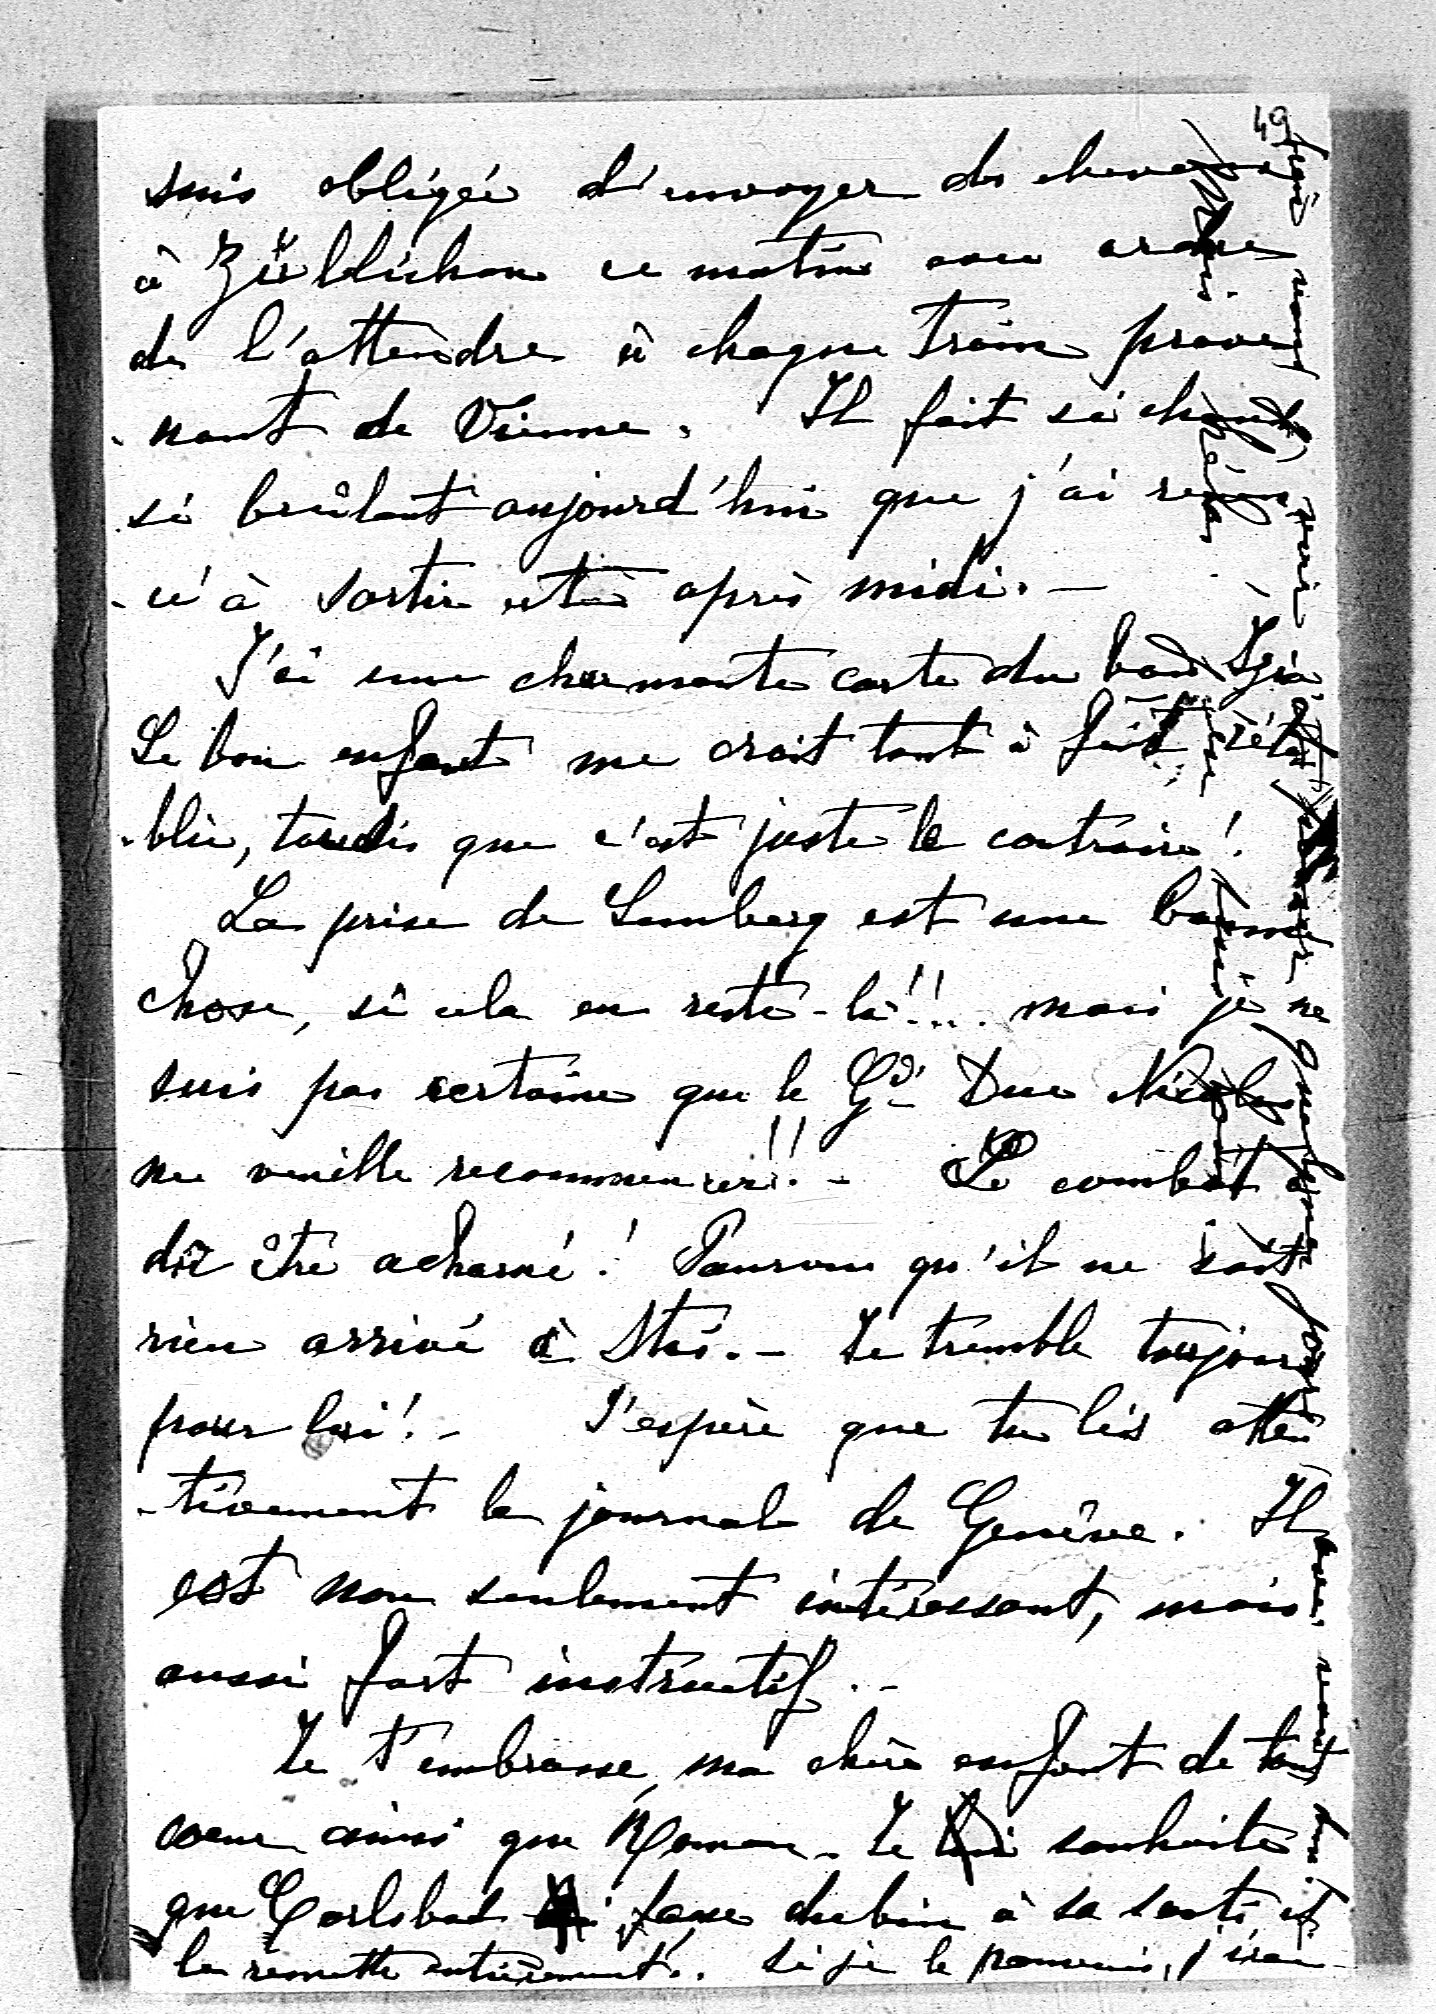 49
suis obligée d'envoyer des chevaux
à Züllichau ce matin avec ordre
de l'attendre à chaque train prove
-nant de Vienne. Il fait si chaud,
si brûlant aujourd'hui que j'ai renon
-cé à sortir cet après midi. -
J'ai une charmante carte du bon
Le bon enfant me croit tout à fait réta
-blie, tandis que c'est juste le contraire!
La prise de Lemberg est une bonne
chose, si cela en reste-là!!! mais je ne
suis pas certaine que le Gd Duc Nicolas
ne veuille recommencer!! - Le combat a
dû être acharné! Pourvu qu'il ne soit
rien arrivé à Stas. - Je tremble toujours
pour lui! - J'espère que tu lis atten
-tivement le journal de Genève. Il
est non seulement intéressant, mais
aussi fort instructif. -
Je t'embrasse, ma chère enfant de tout
coeur ainsi que Roman. Je souhaite
que Carlsbad fasse du bien à sa santé et
la remette entièrement. Si je le pouvais, j'irai
vous voir
quelques jours avec vous